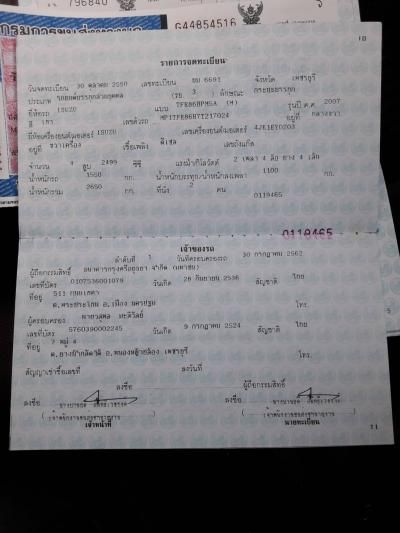 796840
G44854516
กรมการขนส่งทางบก
18
รายการจดทะเบียน
วันจดทะเบียน 30 ตุลาคม 2550 เลขทะเบียน 6691 จังหวัด เพชรบุรี
ประเภท รถยนต์บรรทุกส่วนบุคคล (รย 3 ) ลักษณะ กระบะบรรทุก
ยี่ห้อรถ ISUZU แบบ (M) รุ่นปี ค.ศ. 2007
สี เทา เลขตัวรถ MP1TFR86H7T217024 อยู่ที่ กลางขวา
ยี่ห้อเครื่องยนต์/มอเตอร์ ISUZU เลขเครื่องยนต์/มอเตอร์ 4JK1EY0203
อยู่ที่ ขวาเครื่อง เชื้อเพลิง ดีเซล เลขถังแก๊ส
จำนวน 4 สูบ 2499 ซีซี แรงม้า/กิโลวัตต์ 2 เพลา 4 ล้อ ยาง 4 เส้น
น้ำหนักรถ 1550 กก. น้ำหนักบรรทุก/น้ำหนักลงเพลา 1100 กก.
น้ำหนักรวม 2650 กก. ที่นั่ง 2 คน
0119465
0119465
เจ้าของรถ
ลำดับที่ 1 วันที่ครอบครองรถ 30 กรกฎาคม 2562
ผู้ถือกรรมสิทธิ์ ธนาคารกรุงศรีอยุธยา จำกัด (มหาชน)
เลขที่บัตร 0107536001079 วันเกิด 28 กันยายน 2536 สัญชาติ ไทย
ที่อยู่ 511 ถ.เพชรเกษม
ต.พระประโทน อ.เมือง นครปฐม โทร.
ผู้ครอบครอง
เลขที่บัตร 5760390002245 วันเกิด 9 กรกฎาคม 2524 สัญชาติ ไทย
ที่อยู่ 7 หมู่ 8
ต.ยางน้ำกลัดใต้ อ.หนองหญ้าปล้อง เพชรบุรี โทร.
สัญญาเช่าซื้อเลขที่ ลงวันที่
ลงชื่อ ผู้ถือกรรมสิทธิ์
ลงชื่อ ลงชื่อ
เจ้าหน้าที่ นายทะเบียน